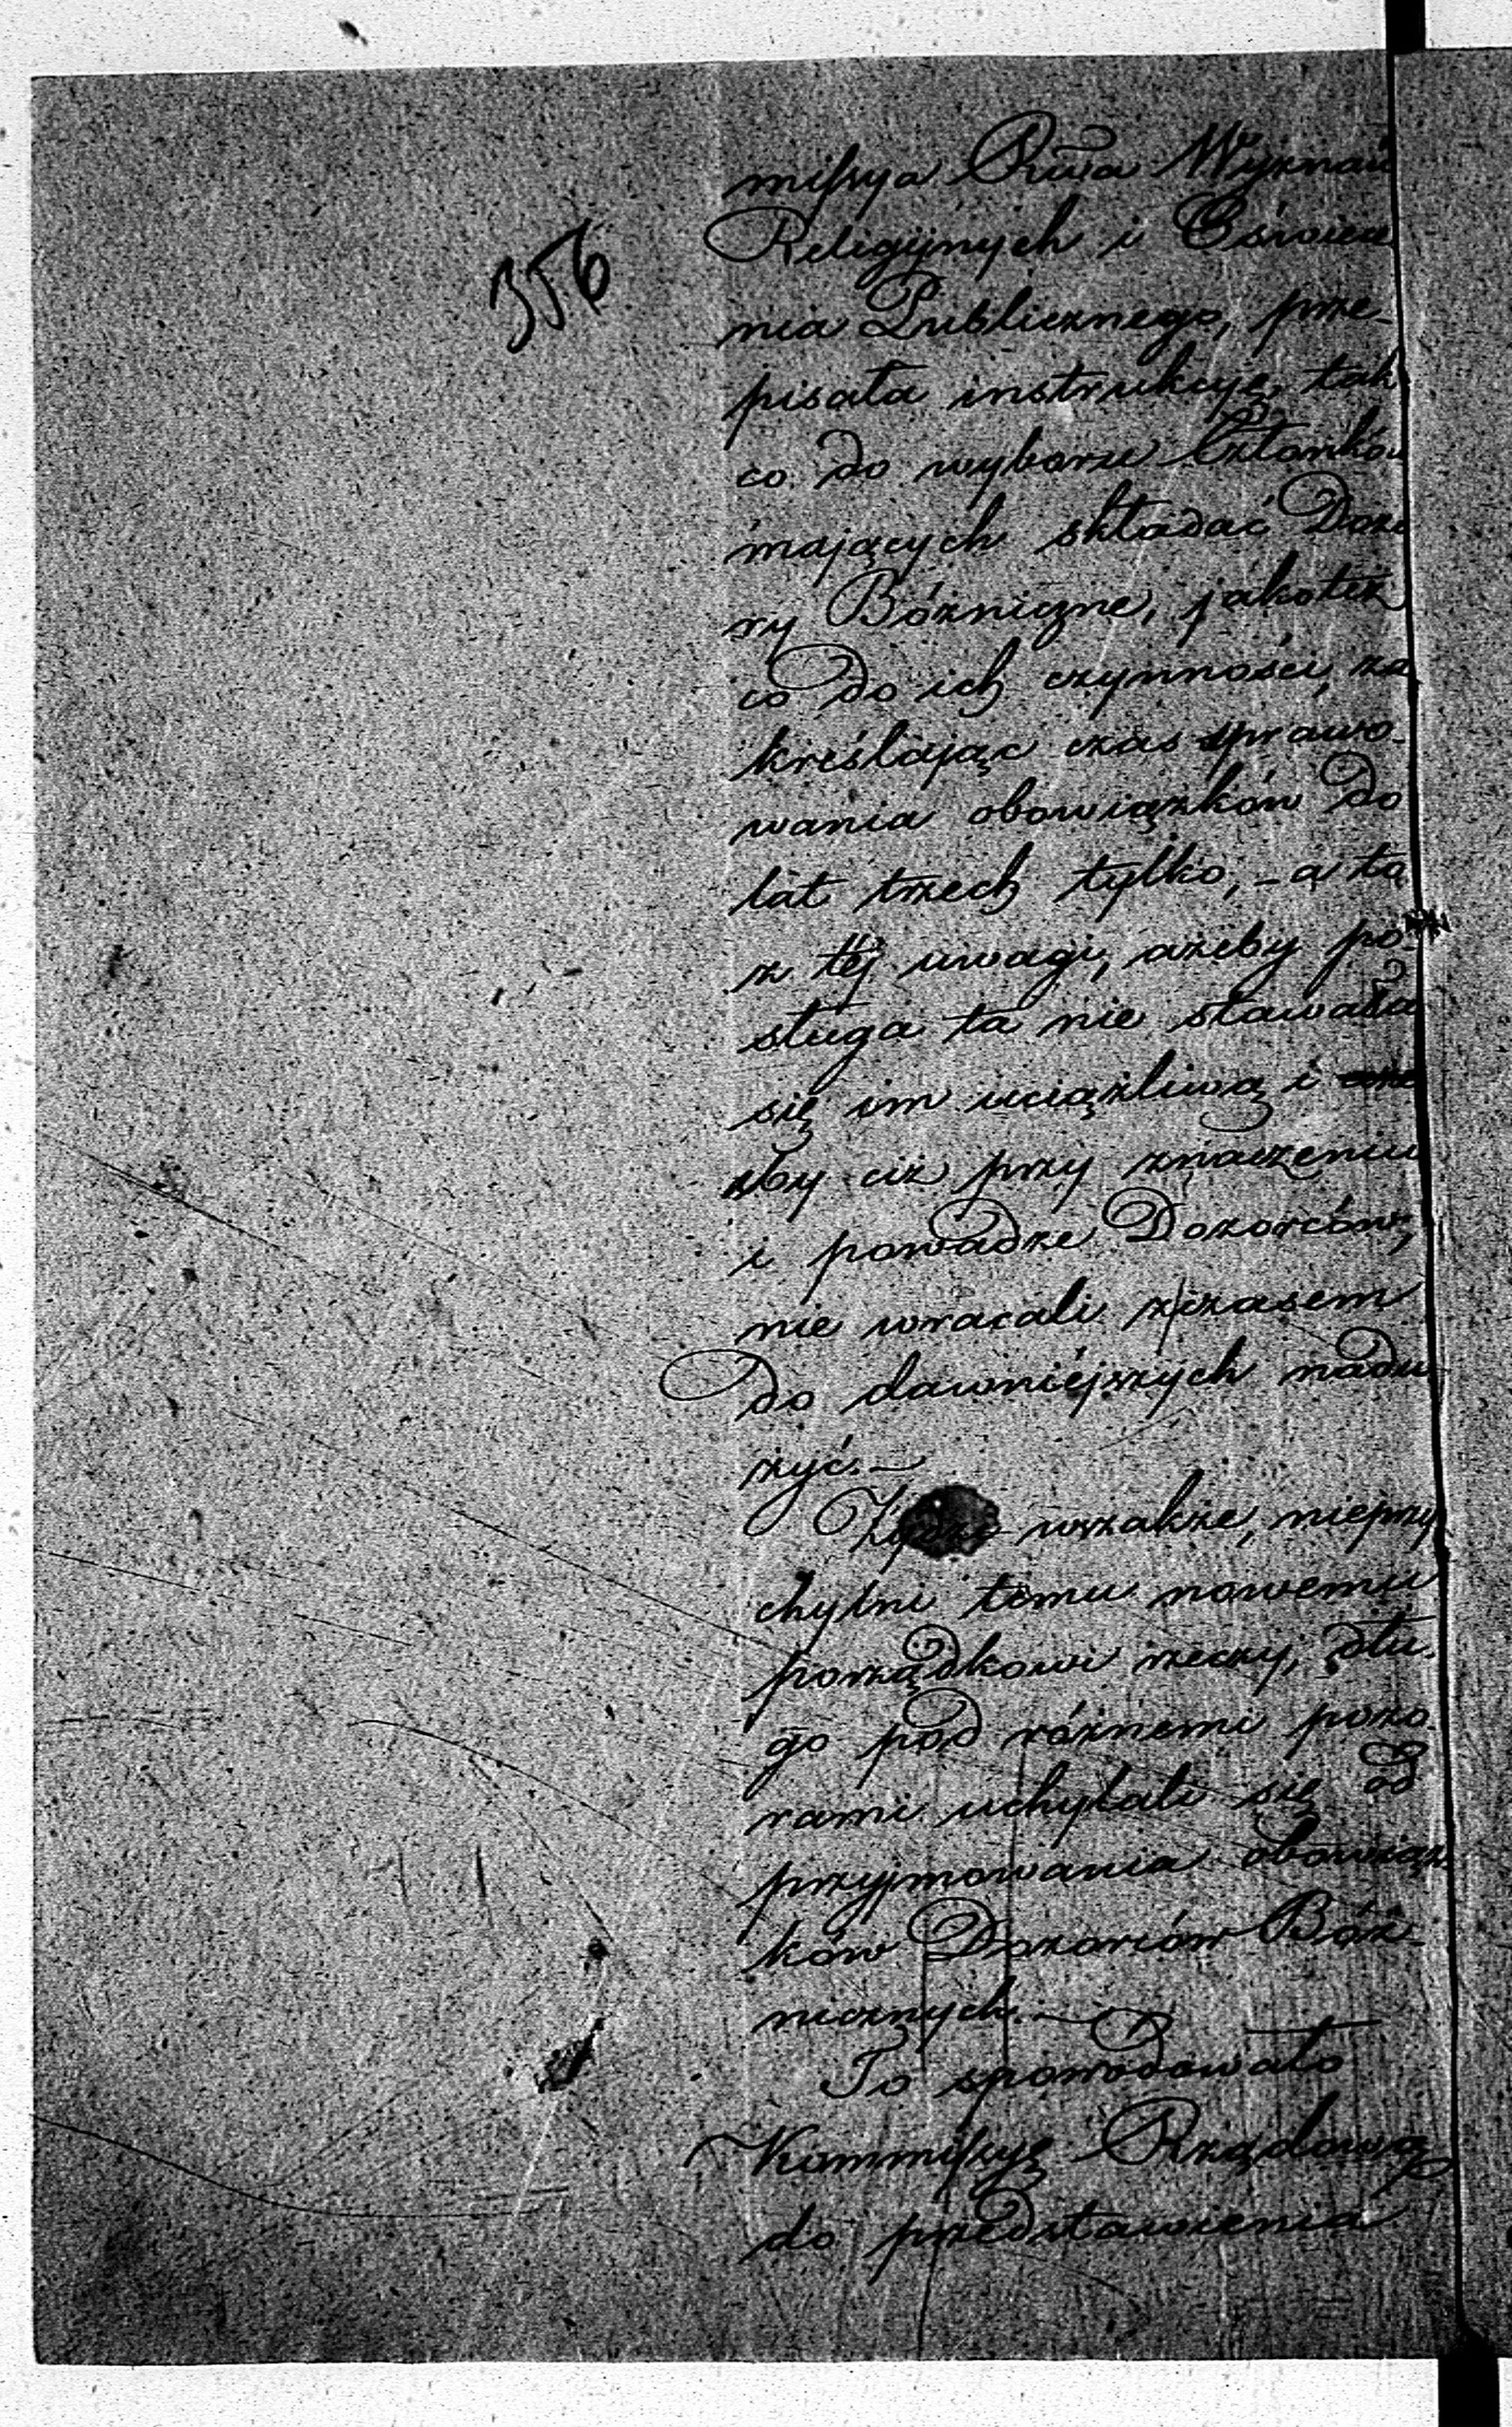 356
missya Rwa Wyznań
Religijnych i Oświece
nia Publicznego, prze-
pisała instrukcyę, tak
co do wyboru Członków
mających składać Dozo
ry Bóżnicze, jakotéż
co do ich czynności, za
kreślając czas sprawo-
wania obowiązków do
lat trzech tylko, - a to
z téj uwagi, ażeby po-
sługa ta nie stawała
się im uciążliwą i
aby ciż przy znaczeniu
i powadze Dozorców,
nie wracali z czasem
do dawniéjszych nadu
żyć. —
Żydzi wszakże, nieprzy
chylni temu nowemu
porządkowi rzeczy, dłu-
go pod różnemi pozo-
rami uchylali się od
przyjmowania obowiąz
ków Dozorców Bóż-
nicznych. —
To spowodowało
Kommissyę Rządową
do przedstawienia